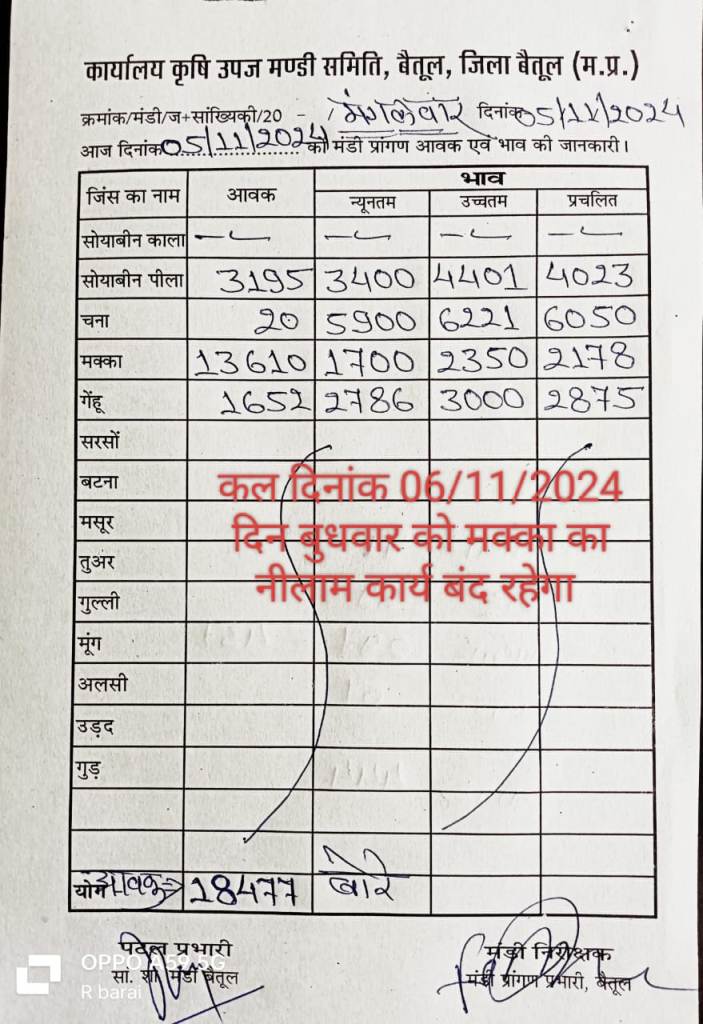 कार्यालय कृषि उपज मण्डी समिति, बैतूल, जिला बैतूल (म.प्र.)
क्रमांक/मंडी/ज+सांख्यिकी/20 - मंगलवार दिनांक 05/11/2024
आज दिनांक 05/11/2024 को मंडी प्रांगण आवक एवं भाव की जानकारी।
जिंस का नाम आवक भाव
न्यूनतम उच्चतम प्रचलित
सोयाबीन काला - - - -
सोयाबीन पीला 3195 3400 4401 4023
चना 20 5900 6221 6050
मक्का 13610 1700 2350 2178
गेंहू 1652 2786 3000 2875
सरसों
बटना
मसूर
तुअर
गुल्ली
मूंग
अलसी
उड़द
गुड़
कल दिनांक 06/11/2024
दिन बुधवार को मक्का का
नीलाम कार्य बंद रहेगा
योग आवक 18477 बोरे
पटेल प्रभारी मंडी निरीक्षक
सां. शा. मंडी बैतूल मंडी प्रांगण प्रभारी, बैतूल
OPPO A59 5G
R barai